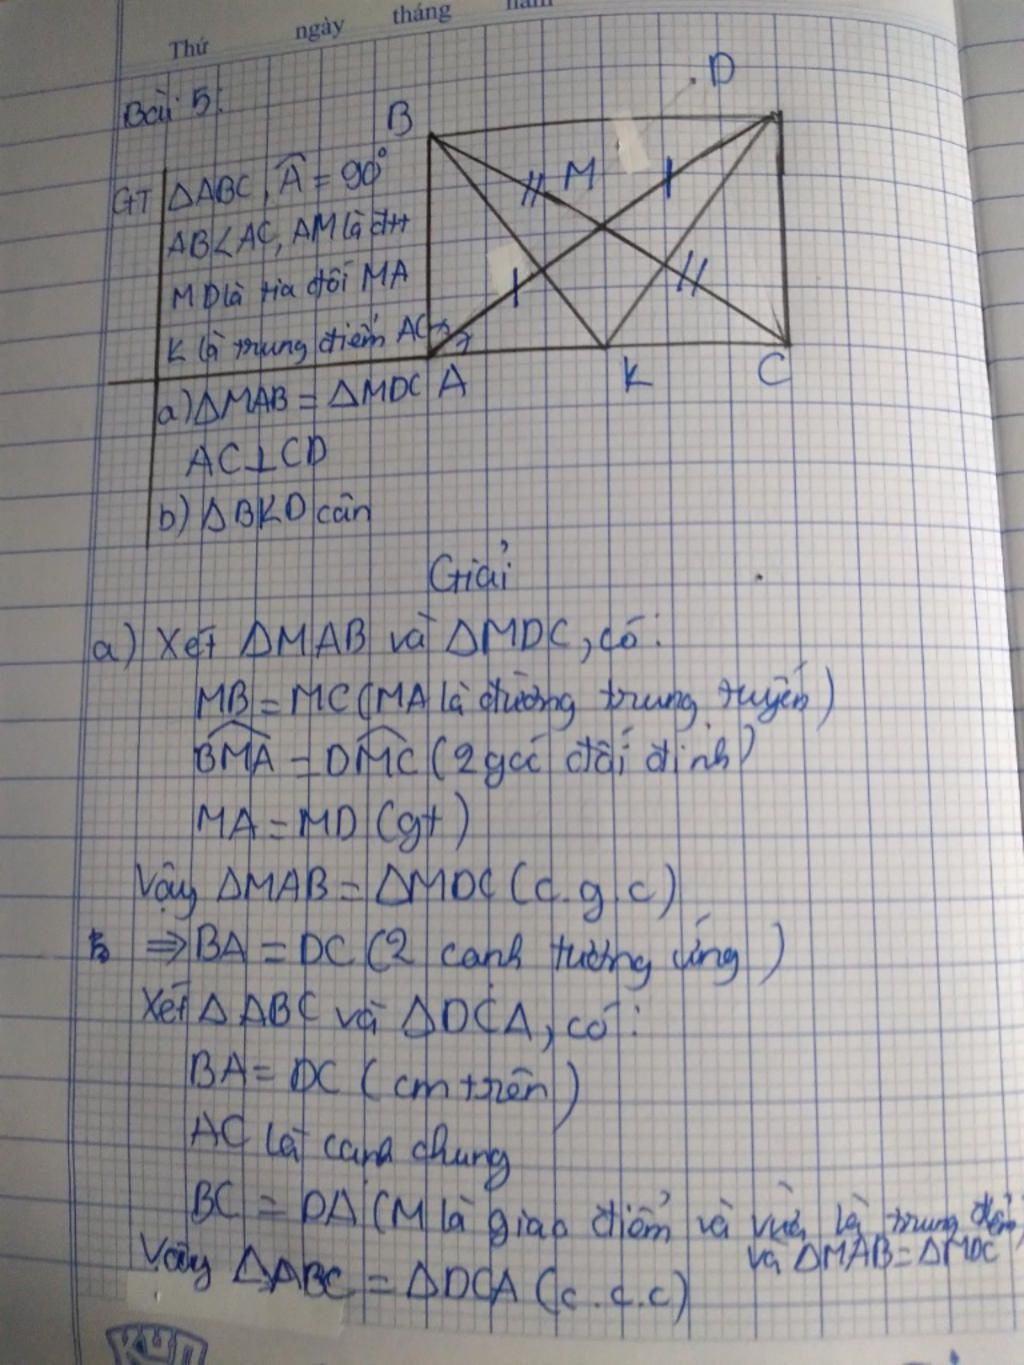 Thứ ngày tháng năm
Bài 5:
B
D
M
A
K
C
GT ΔABC, Â = 90°
AB < AC, AM là đtt
MD là tia đối MA
K là trung điểm AC
a) ΔMAB = ΔMDC
AC ⊥ CD
b) ΔBKD cân
Giải
a) Xét ΔMAB và ΔMDC, có:
MB = MC (MA là đường trung tuyến)
BMA = DMC (2 góc đối đỉnh)
MA = MD (gt)
Vậy ΔMAB = ΔMDC (c.g.c)
⇒ BA = DC (2 cạnh tương ứng)
Xét ΔABC và ΔDCA, có:
BA = DC (cm trên)
AC là cạnh chung
BC = DA (M là giao điểm và vừa là trung điểm
và ΔMAB = ΔMDC
Vậy ΔABC = ΔDCA (c.c.c)